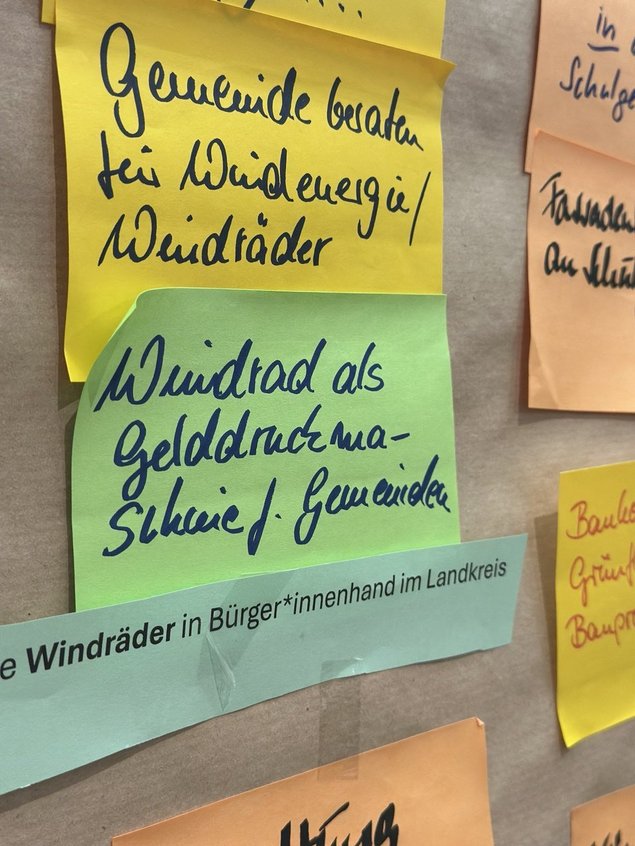 Gemeinde beraten
für Windenergie/
Windräder
Windrad als
Gelddruckma-
schine f. Gemeinden
e Windräder in Bürger*innenhand im Landkreis
in
Fassaden
an Schu
Grünf